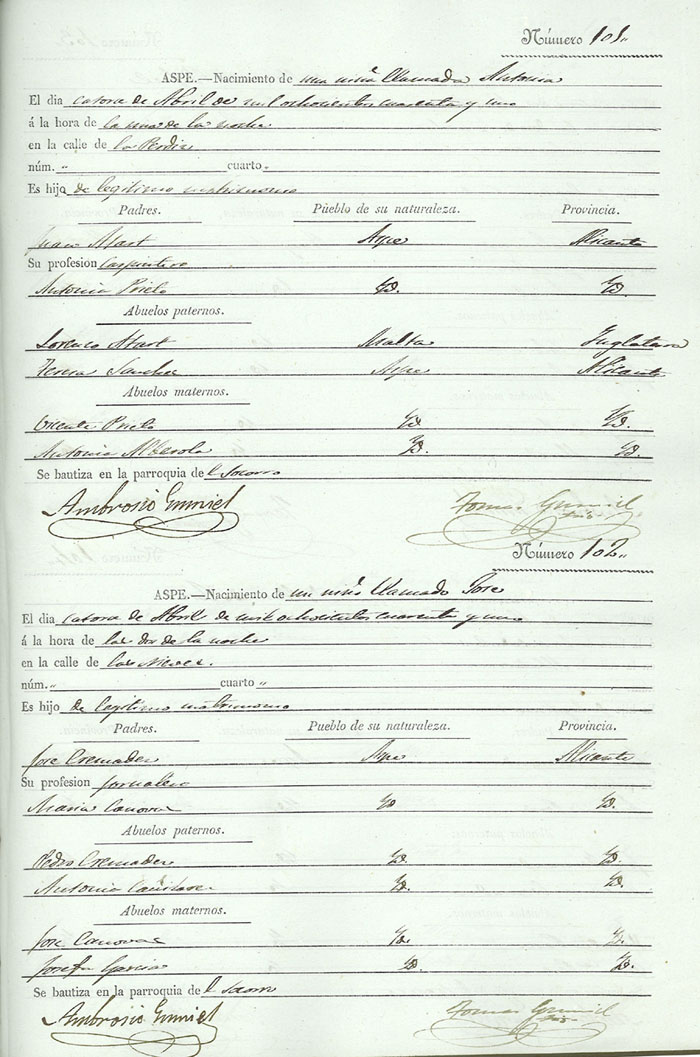 Número 101,,
ASPE.—Nacimiento de una niña llamada Antonia
El dia catorce de Abril de mil ochocientos cuarenta y uno
á la hora de la una de la noche
en la calle de la
núm. ,, cuarto ,,
Es hijo de legitimo matrimonio
Padres. Pueblo de su naturaleza. Provincia.
Juan Aspe Alicante
Su profesion Carpintero
Antonia Prieto Yd. Yd.
Abuelos paternos.
Lorenzo Malta Inglaterra
Teresa Sanchez Aspe Alicante
Abuelos maternos.
Vicente Prieto Yd. Yd.
Antonia Alberola Yd. Yd.
Se bautiza en la parroquia del Socorro
Ambrosio Gumiel Tomas Gumiel
Srio
Número 102,,
ASPE.—Nacimiento de un niño llamado Jose
El dia catorce de Abril de mil ochocientos cuarenta y uno
á la hora de las dos de la noche
en la calle de las Nieves.
núm. ,, cuarto ,,
Es hijo de legitimo matrimonio
Padres. Pueblo de su naturaleza. Provincia.
Jose Cremades Aspe Alicante
Su profesion jornalero
Maria Canovas Yd Yd.
Abuelos paternos.
Pedro Cremades Yd. Yd.
Antonia Yd. Yd.
Abuelos maternos.
Jose Canovas Yd. Yd.
Josefa Garcia Yd. Yd.
Se bautiza en la parroquia del Socorro
Ambrosio Gumiel Tomas Gumiel
Srio